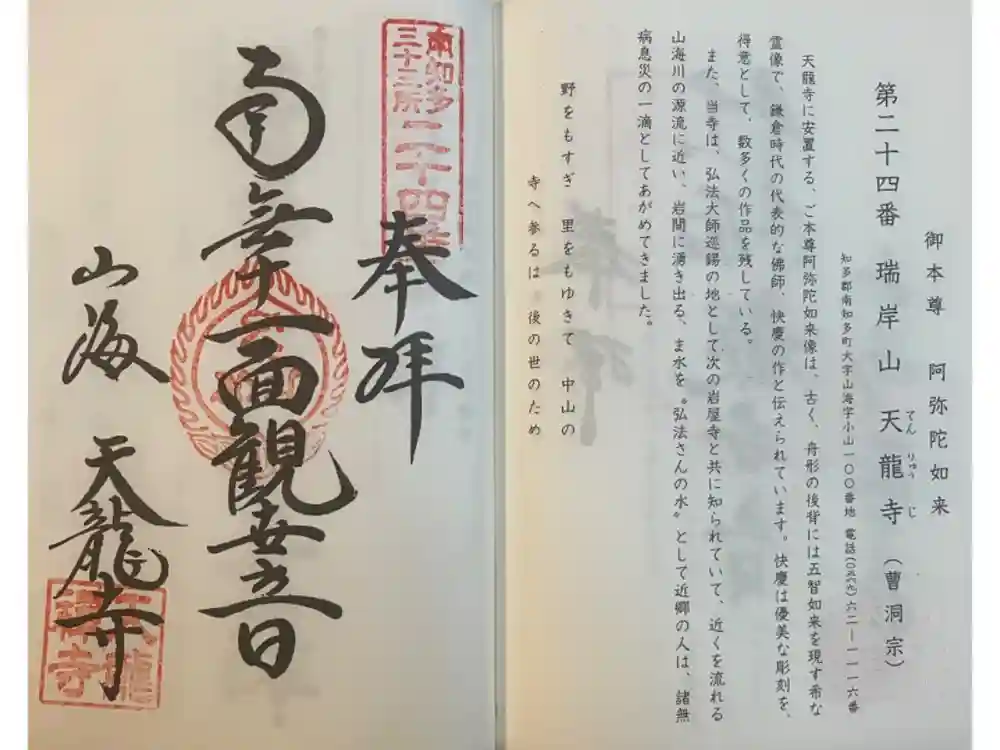 御本尊 阿弥陀如来
第二十四番 瑞岸山 天龍寺 (曹洞宗)
てんりゅうじ
知多郡南知多町大字山海字小山一〇〇番地 電話(〇五六九)六二―一一一六番
天龍寺に安置する、ご本尊阿弥陀如来像は、古く、舟形の後背には五智如来を現す希な
霊像で、鎌倉時代の代表的な佛師、快慶の作と伝えられています。快慶は優美な彫刻を、
得意として、数多くの作品を残している。
また、当寺は、弘法大師巡錫の地として次の岩屋寺と共に知られていて、近くを流れる
山海川の源流に近い、岩間に湧き出る、ま水を〝弘法さんの水〟として近郷の人は、諸無
病息災の一滴としてあがめてきました。
野をもすぎ 里をもゆきて 中山の
寺へ参るは 後の世のため
南知多
三十三所
二十四番
奉拝
南無十一面観世音
山海 天龍寺
天龍
禅寺